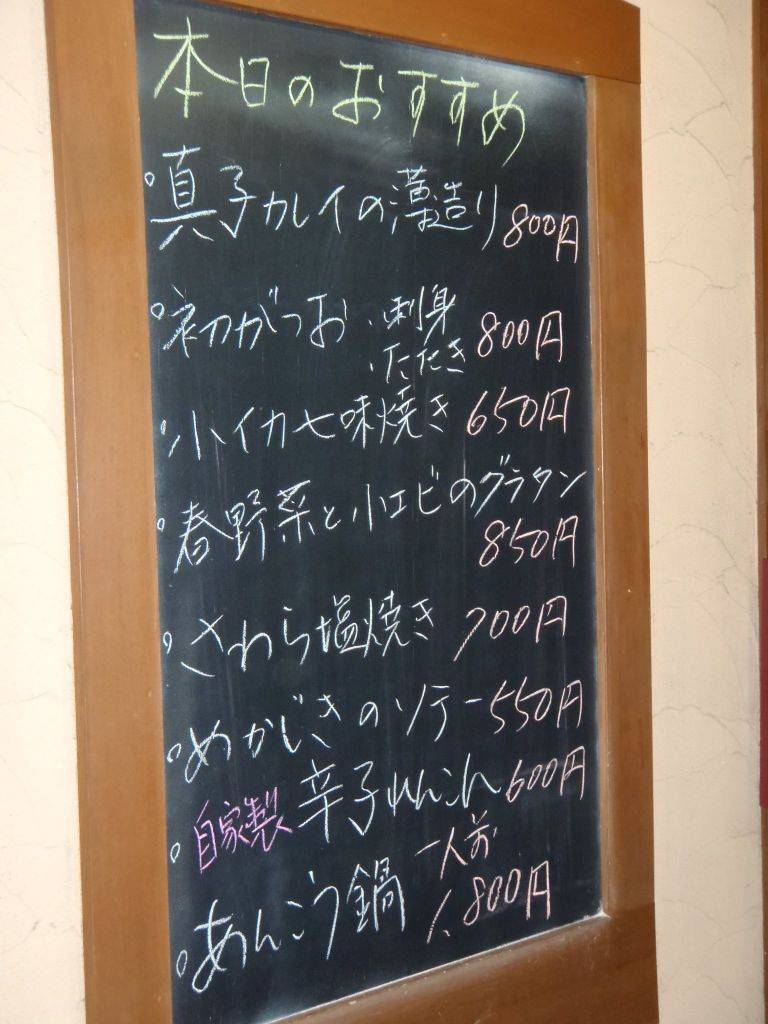 本日のおすすめ
真子カレイの薄造り 800円
初がつお ・刺身 ・たたき 800円
小イカ七味焼き 650円
春野菜と小エビのグラタン
850円
さわら塩焼き 700円
めかじきのソテー 550円
自家製 辛子れんこん 600円
あんこう鍋 一人前 1,800円